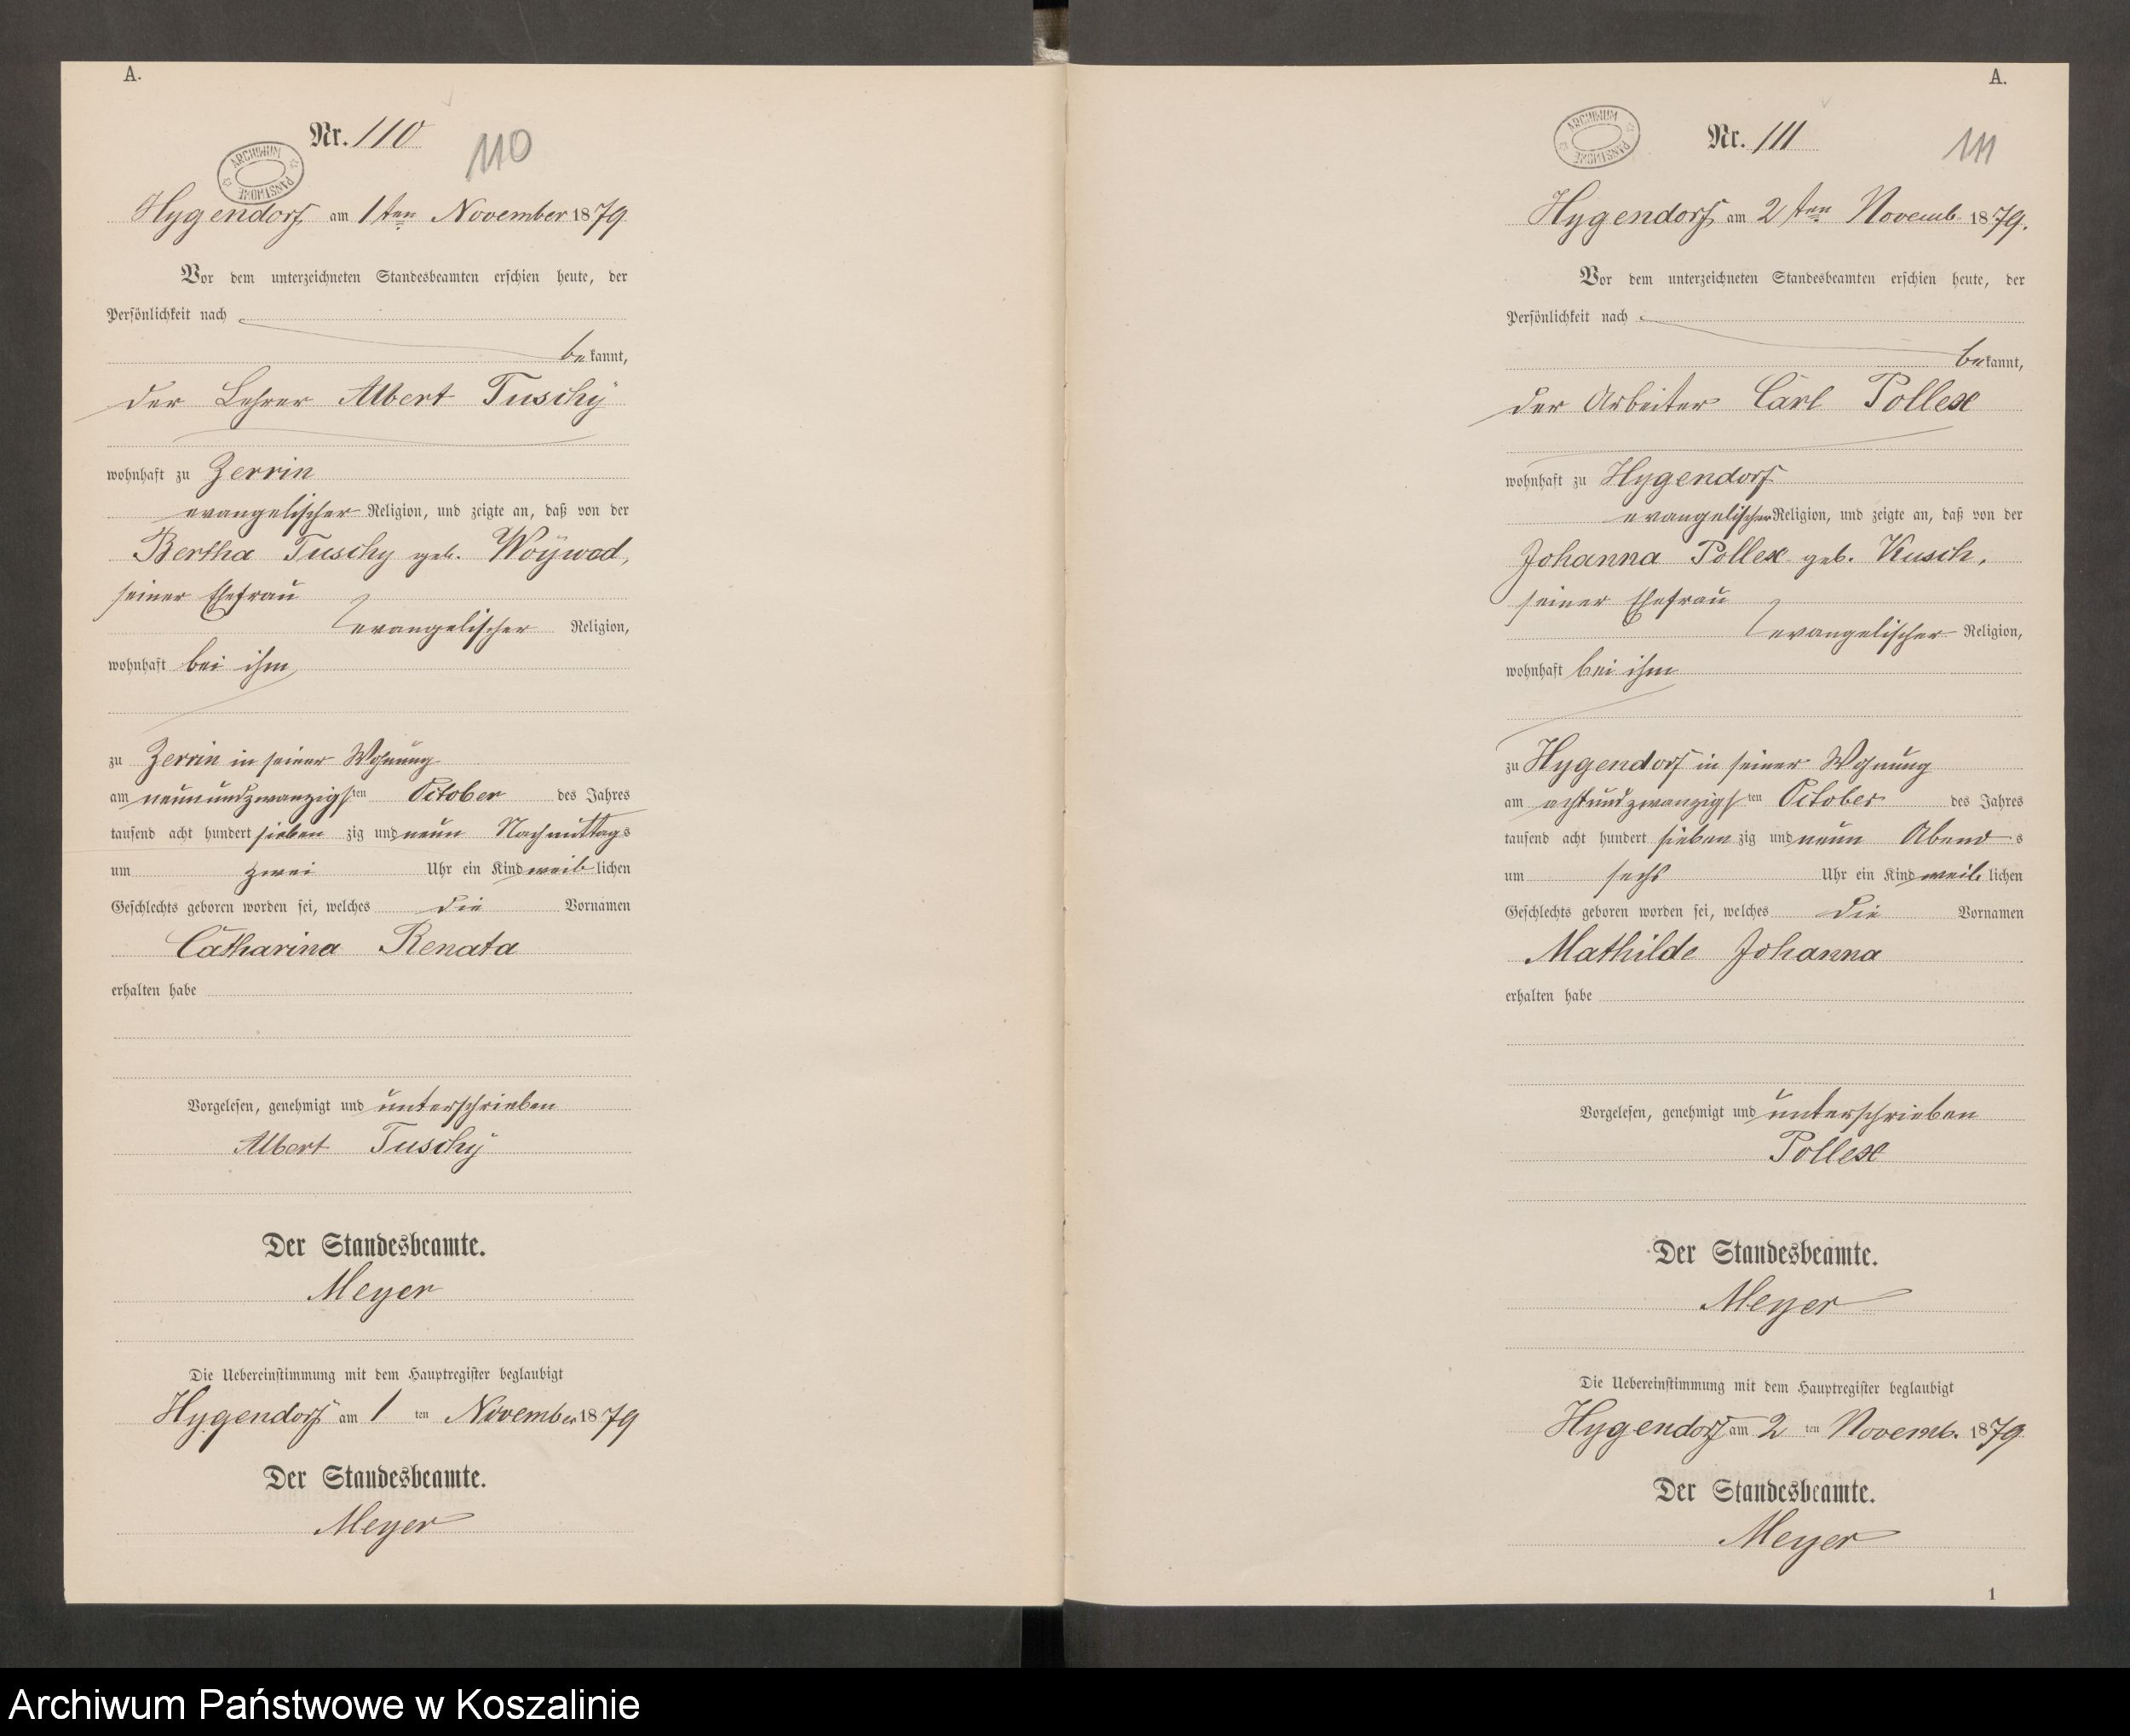 A.
Nr. 110
110
ARCHIWUM PAŃSTWOWE
Hygendorf am 1ten November 1879
Vor dem unterzeichneten Standesbeamten erschien heute, der
Persönlichkeit nach
bekannt,
der Lehrer Albert Tuschÿ
wohnhaft zu Zerrin
evangelischer Religion, und zeigte an, daß von der
Bertha Tuschy geb. Woÿwod,
seiner Ehefrau
evangelischer Religion,
wohnhaft bei ihm
zu Zerrin in seiner Wohnung
am neunundzwanzigsten October des Jahres
tausend acht hundert siebenzig und neun Nachmittags
um zwei Uhr ein Kind weiblichen
Geschlechts geboren worden sei, welches die Vornamen
Catharina Renata
erhalten habe
Vorgelesen, genehmigt und unterschrieben
Albert Tuschÿ
Der Standesbeamte.
Meyer
Die Uebereinstimmung mit dem Hauptregister beglaubigt
Hygendorf am 1 ten November 1879
Der Standesbeamte.
Meyer
A.
Nr. 111
111
ARCHIWUM PAŃSTWOWE
Hygendorf am 2ten Novemb. 1879.
Vor dem unterzeichneten Standesbeamten erschien heute, der
Persönlichkeit nach
bekannt,
der Arbeiter Carl Pollex
wohnhaft zu Hygendorf
evangelischer Religion, und zeigte an, daß von der
Johanna Pollex geb. Kusch,
seiner Ehefrau
evangelischer Religion,
wohnhaft bei ihm
zu Hygendorf in seiner Wohnung
am achtundzwanzigsten October des Jahres
tausend acht hundert siebenzig und neun Abends
um sechs Uhr ein Kind weiblichen
Geschlechts geboren worden sei, welches die Vornamen
Mathilde Johanna
erhalten habe
Vorgelesen, genehmigt und unterschrieben
Pollex
Der Standesbeamte.
Meyer
Die Uebereinstimmung mit dem Hauptregister beglaubigt
Hygendorf am 2 ten Novemb. 1879
Der Standesbeamte.
Meyer
1
Archiwum Państwowe w Koszalinie